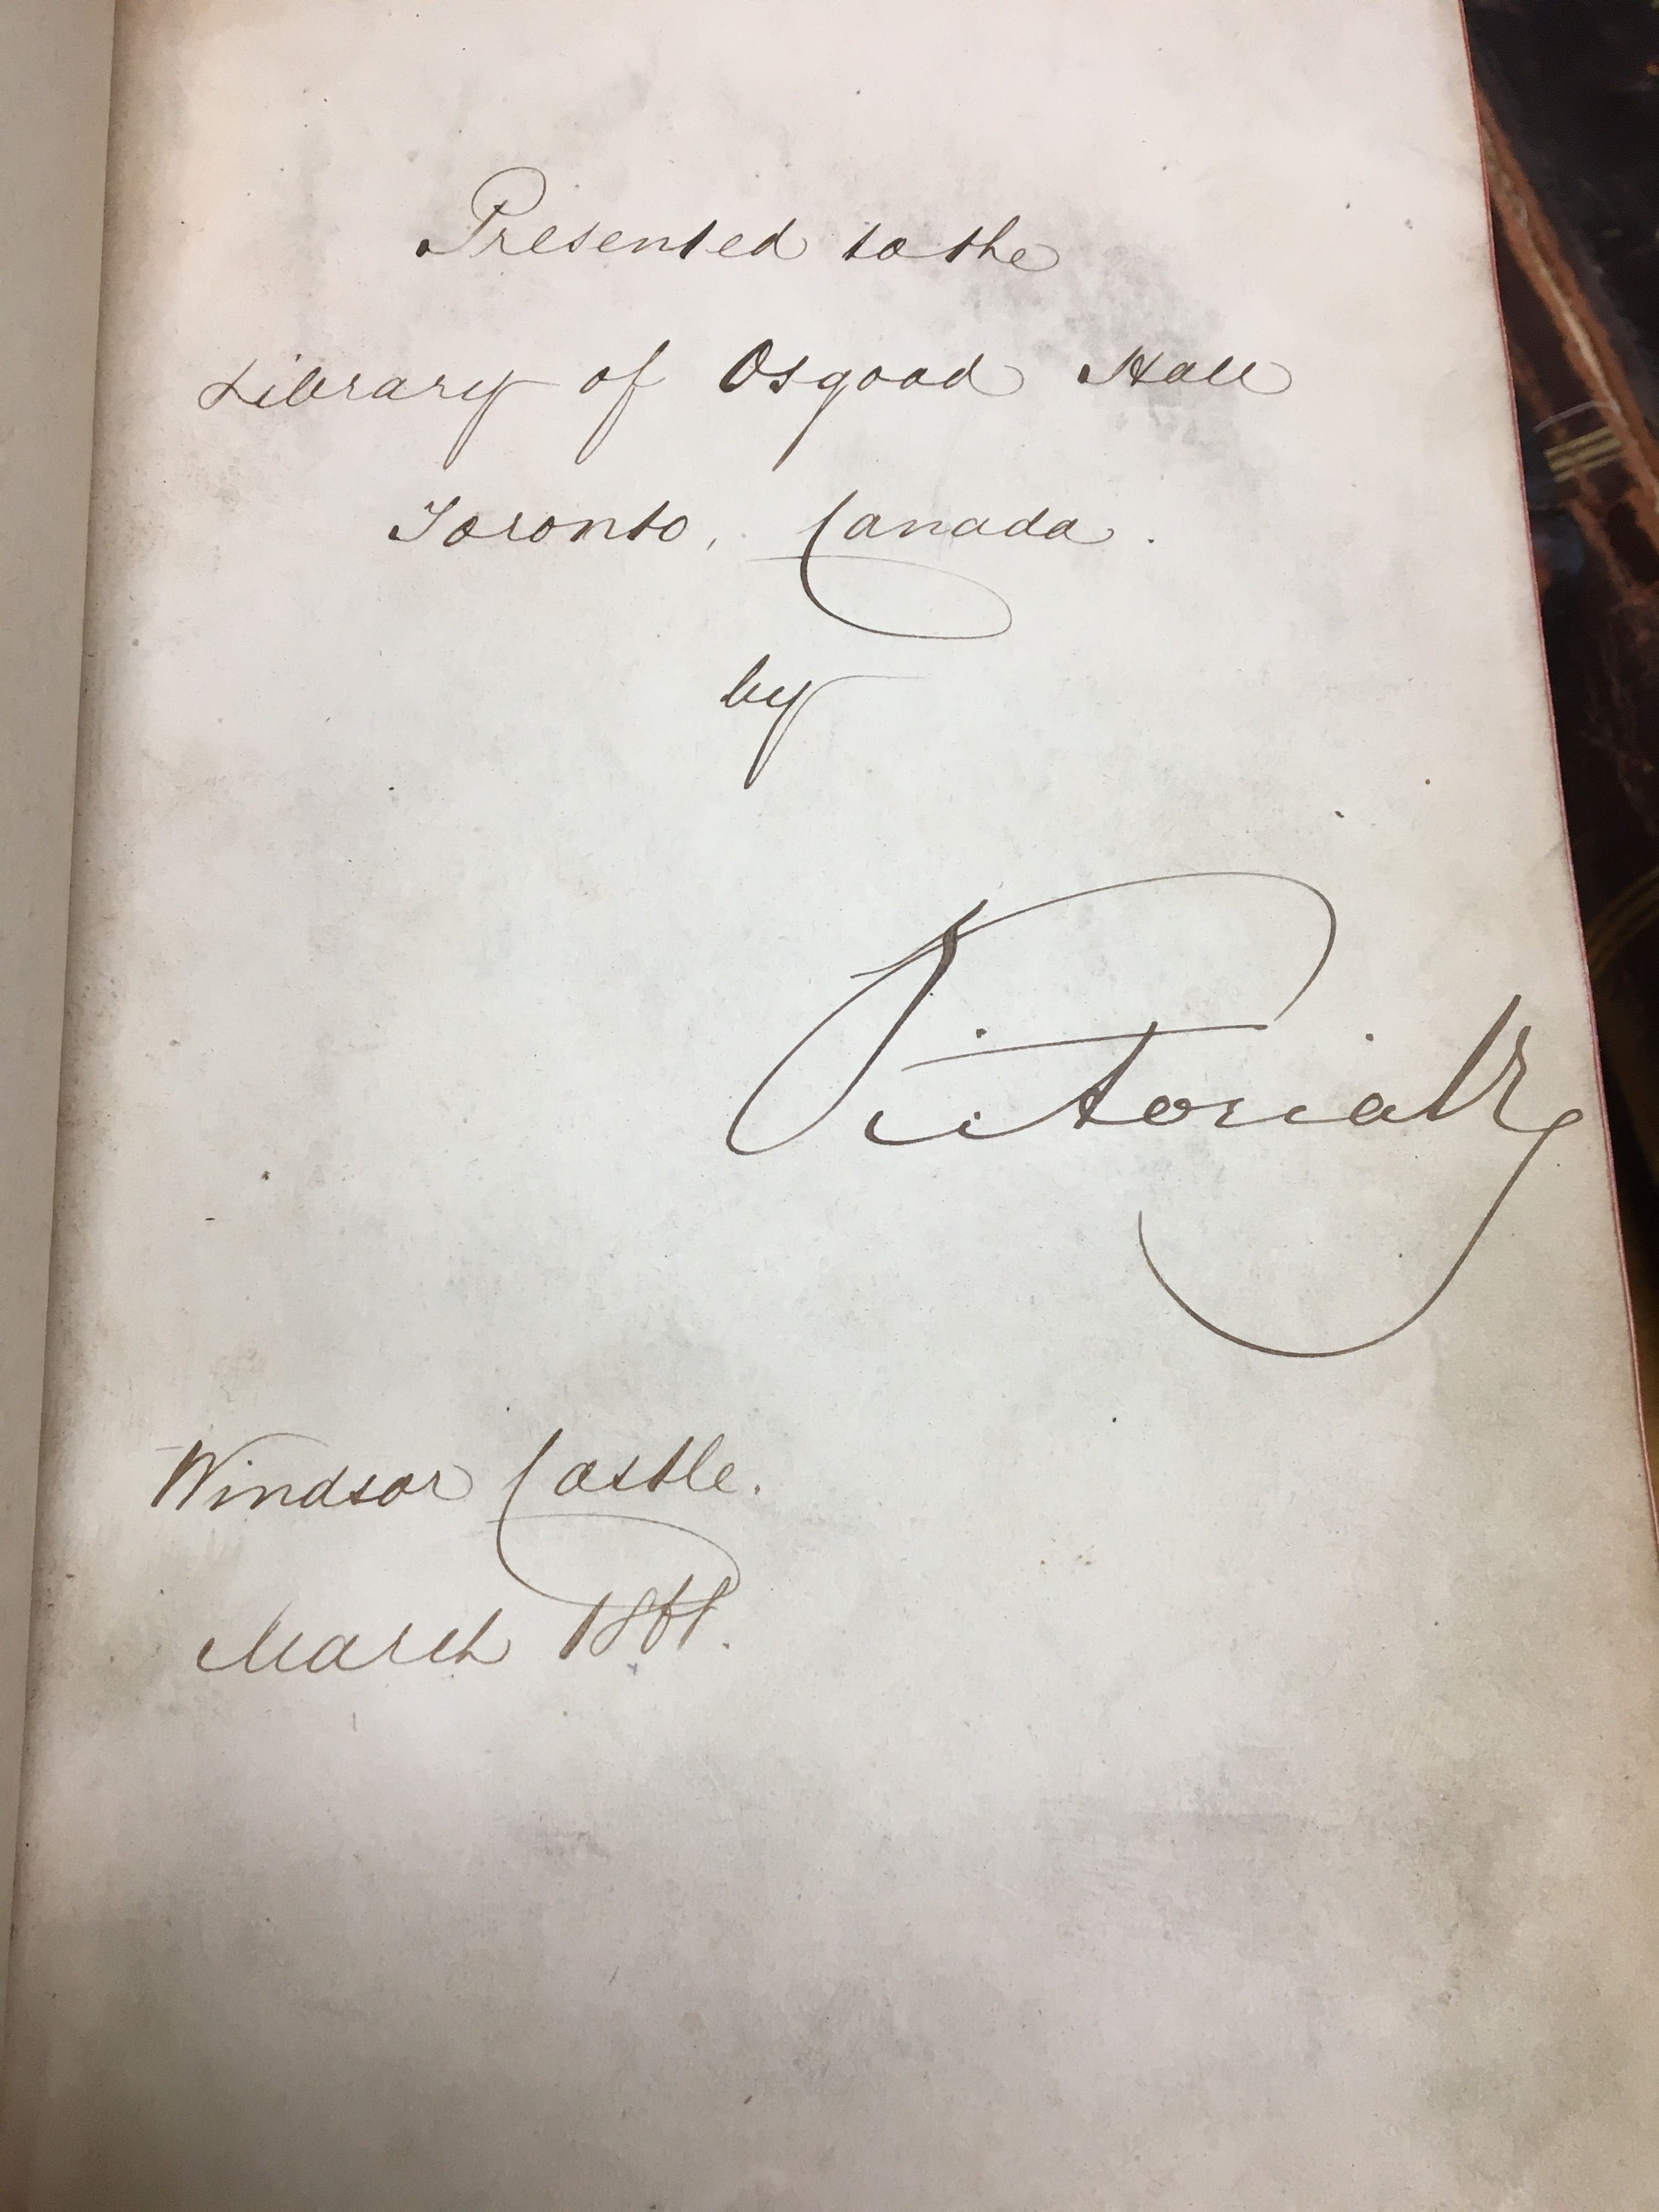 Presented to the
Library of Osgood Hall
Toronto, Canada.
by
Victoria R
Windsor Castle.
March